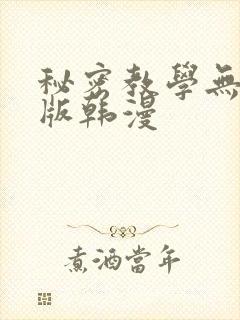 秘密教學無
版韩漫
煮酒當年